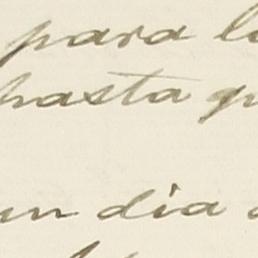 para
hasta
un dia